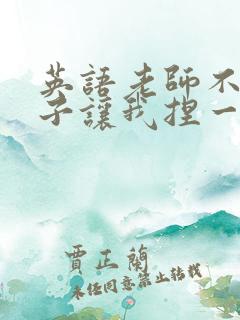 英語老師不
子讓我捏一
賈正蘭
未經同意禁止轉載